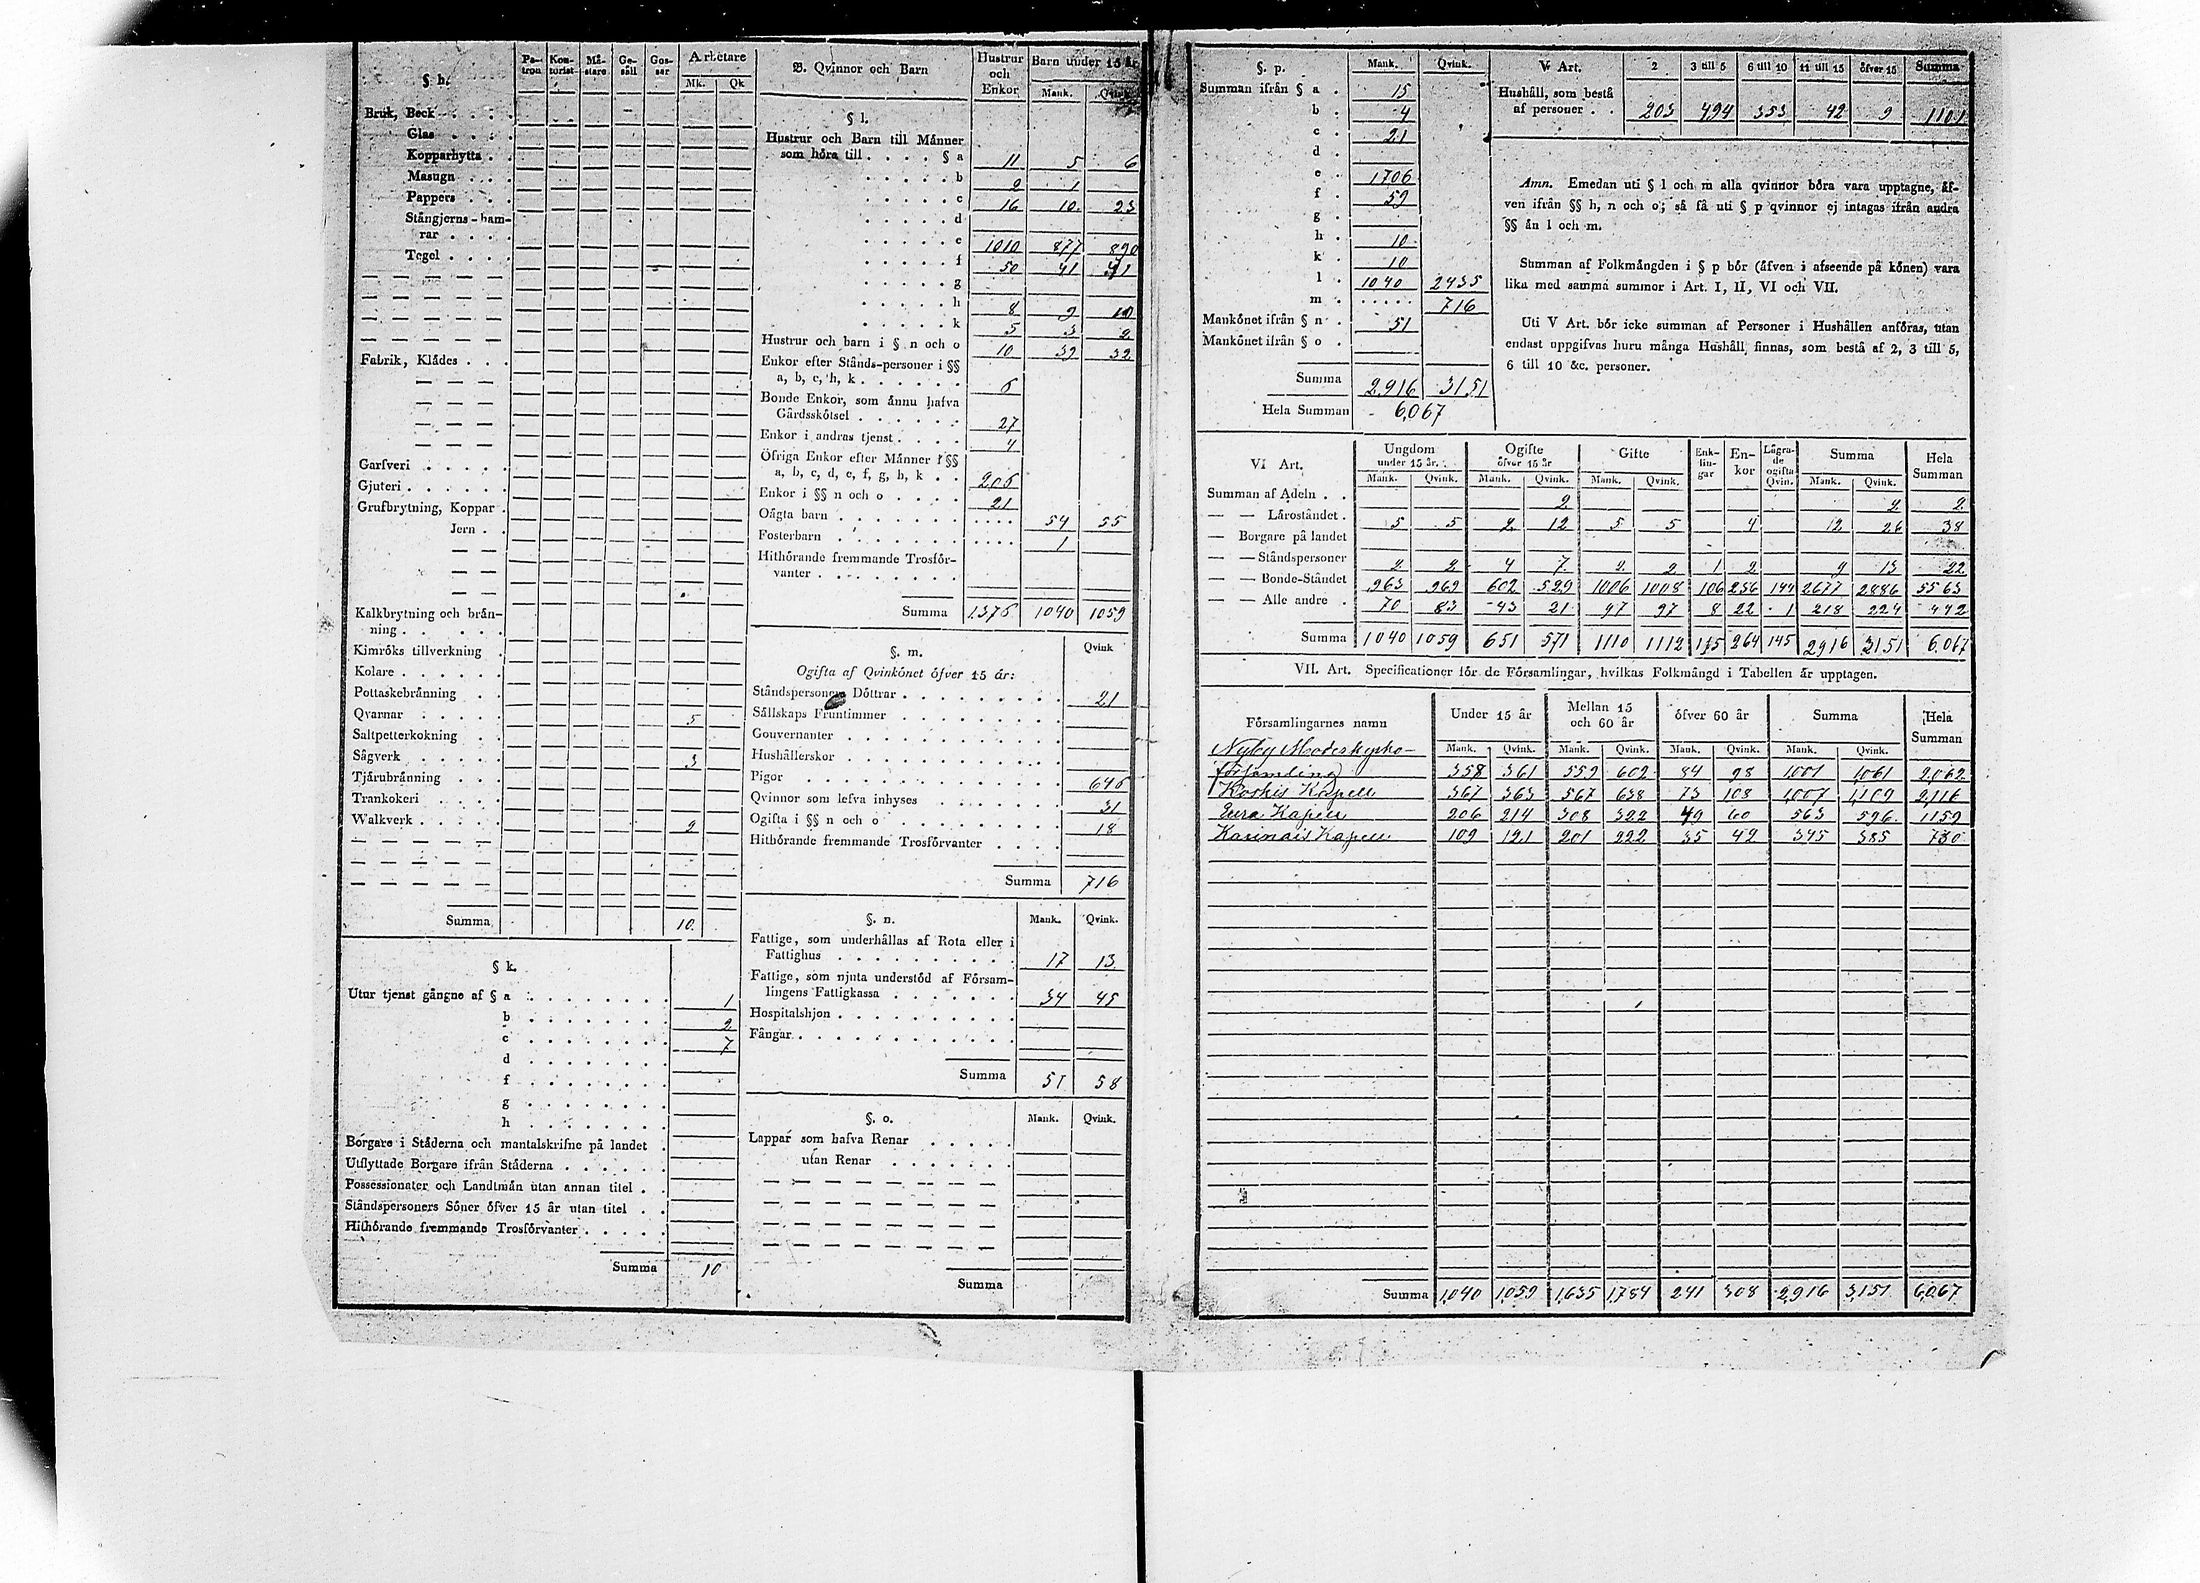 § h. Pa-tron Kon-torist Må-stare Ge-säll Gos-sar Arbetare Mk. Qk
Bruk, Beck . . . .
Glas . . . .
Kopparhytta . .
Masugn . . .
Pappers . . .
Stångjerns-ham-
rar . . . .
Tegel . . . .
Fabrik, Klådes . . .
Garfveri . . . . .
Gjuteri . . . . . .
Grufbrytning, Koppar .
Jern . .
Kalkbrytning och brån-
ning . . . . . .
Kimröks tillverkning .
Kolare . . . . . .
Pottaskebränning . .
Qvarnar . . . . 5
Saltpetterkokning . .
Sågverk . . . . 3
Tjärubränning . . .
Trankokeri . . . .
Walkverk . . . . . 2
Summa 10
§ k.
Utur tjenst gångne af § a . . . . . . . 1
b . . . . . . . 2
c . . . . . . . 7
d . . . . . . .
f . . . . . . .
g . . . . . . .
h . . . . . . .
Borgare i Städerna och mantalskrifne på landet .
Utflyttade Borgare ifrån Städerna . . . . . .
Possessionater och Landtmän utan annan titel . .
Ståndspersoners Söner öfver 15 år utan titel . .
Hithörande fremmande Trosförvanter . . . .
Summa 10
B. Qvinnor och Barn Hustrur och Enkor Barn under 15 år Mank. Qvink.
§ l.
Hustrur och Barn till Männer
som höra till . . . . § a 11 5 6
. . . . . b 2 1
. . . . . c 16 10 23
. . . . . d
. . . . . e 1010 877 890
. . . . . f 50 41 41
. . . . . g
. . . . . h 8 2 10
. . . . . k 5 3 2
Hustrur och barn i § n och o 10 32 32
Enkor efter Stånds-personer i §§
a, b, c, h, k . . . . . . 6
Bonde Enkor, som ännu hafva
Gårdsskötsel . . . . . . 27
Enkor i andras tjenst . . . . 4
Öfriga Enkor efter Männer i §§
a, b, c, d, e, f, g, h, k . . 205
Enkor i §§ n och o . . . . 21
Oägta barn . . . . . . . . . . . 54 55
Fosterbarn . . . . . . . . . . . 1
Hithörande fremmande Trosför-
vanter . . . . . . . .
Summa 1375 1040 1059
§. m. Qvink
Ogifta af Qvinkönet öfver 15 år:
Ståndspersoners Döttrar . . . . . . . . . 21
Sällskaps Fruntimmer . . . . . . . . .
Gouvernanter . . . . . . . . . . . .
Hushållerskor . . . . . . . . . . . .
Pigor . . . . . . . . . . . . . . 646
Qvinnor som lefva inhyses . . . . . . . 31
Ogifta i §§ n och o . . . . . . . . . 18
Hithörande fremmande Trosförvanter . . . .
Summa 716
§. n. Mank. Qvink.
Fattige, som underhållas af Rota eller i
Fattighus . . . . . . . . . . 17 13
Fattige, som njuta understöd af Försam-
lingens Fattigkassa . . . . . . . 34 45
Hospitalshjon . . . . . . . . . .
Fångar . . . . . . . . . . . . .
Summa 51 58
§. o. Mank. Qvink.
Lappar som hafva Renar . . . . .
utan Renar . . . . . . .
Summa
§. p. Mank. Qvink.
Summan ifrån § a . 15
b . 4
c . 21
d .
e . 1706
f . 59
g .
h . 10
k . 10
l . 1040 2435
m . . . . . . 716
Mankönet ifrån § n . 51
Mankönet ifrån § o .
Summa 2916 3151
Hela Summan 6,067
V Art. 2 3 till 5 6 till 10 11 till 15 öfver 15 Summa
Hushåll, som bestå
af personer . . 203 494 353 42 9 1101
Anm. Emedan uti § l och m alla qvinnor böra vara upptagne, äf-
ven ifrån §§ h, n och o; så få uti § p qvinnor ej intagas ifrån andra
§§ än l och m.
Summan af Folkmängden i § p bör (äfven i afseende på könen) vara
lika med samma summor i Art. I, II, VI och VII.
Uti V Art. bör icke summan af Personer i Hushållen anföras, utan
endast uppgifvas huru många Hushåll finnas, som bestå af 2, 3 till 5,
6 till 10 &c. personer.
VI Art. Ungdom under 15 år. Ogifte öfver 15 år Gifte Enk-lin-gar En-kor Lägra-de ogifta Qvin. Summa Hela Summan
Mank. Qvink. Mank. Qvink. Mank. Qvink. Mank. Qvink.
Summan af Adeln . . 2 2 2
— — Läroståndet . 5 5 2 12 5 5 4 12 26 38
— Borgare på landet
— — Ståndspersoner 2 2 4 7 2 2 1 2 9 13 22
— — Bonde-Ståndet 963 969 602 529 1006 1008 106 236 144 2677 2886 5563
— — Alle andre . 70 83 43 21 97 97 8 22 1 218 224 442
Summa 1040 1059 651 571 1110 1112 115 264 145 2916 3151 6,067
VII. Art. Specificationer för de Församlingar, hvilkas Folkmängd i Tabellen är upptagen.
Församlingarnes namn Under 15 år Mellan 15 och 60 år öfver 60 år Summa Hela Summan
Mank. Qvink. Mank. Qvink. Mank. Qvink. Mank. Qvink.
Nyby Moderkyrko-
församling 358 361 559 602 84 98 1,001 1,061 2,062
Koskis Kapell 367 363 567 638 73 108 1,007 1,109 2,116
Eura Kapell 206 214 308 322 49 60 563 596 1159
Karinais Kapell 109 121 201 222 35 42 345 385 730
Summa 1,040 1,059 1,635 1,784 241 308 2,916 3,151 6,067